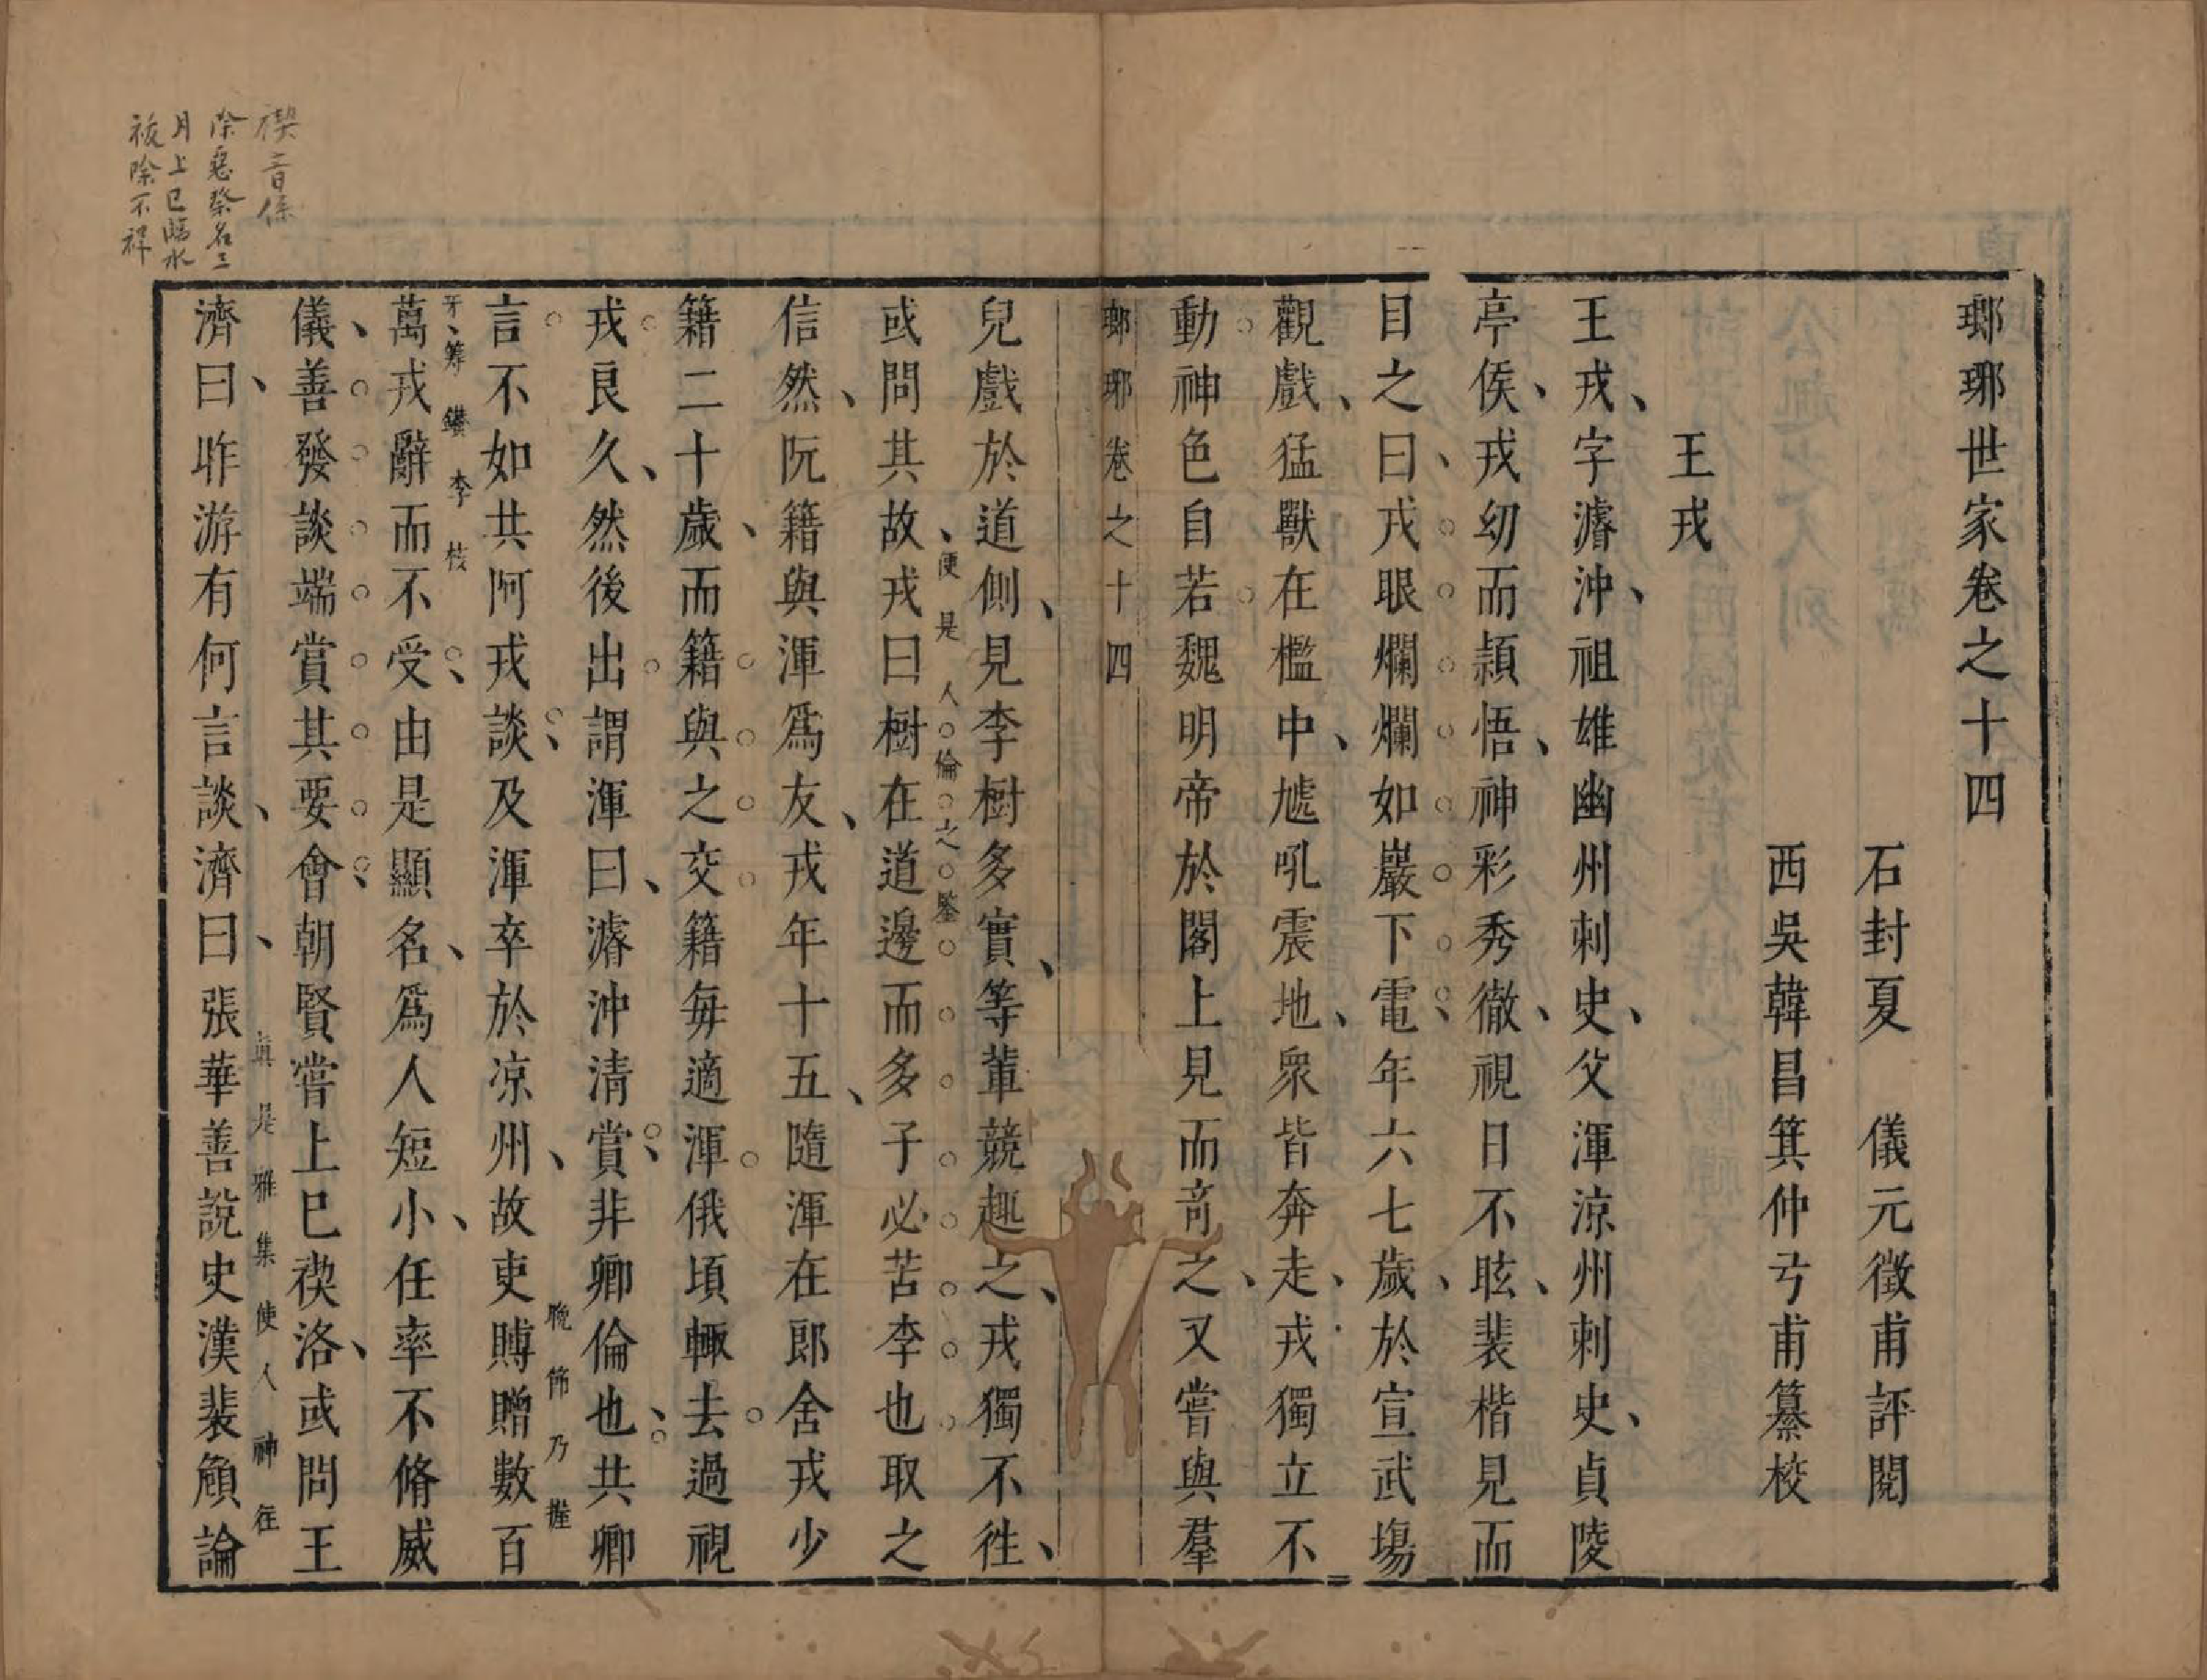 瑯琊世家卷之十四
石封夏　儀元徵甫評閱
西吳韓昌箕仲弓甫纂校
王戎
王戎字濬沖祖雄幽州刺史父渾涼州刺史貞陵
亭侯戎幼而頴悟神彩秀徹視日不眩裴楷見而
目之曰戎眼爛爛如巖下電年六七歲於宣武塲
觀戲猛獸在檻中虓吼震地衆皆奔走戎獨立不
動神色自若魏明帝於閣上見而竒之又嘗與羣
瑯琊卷之十四
兒戲於道側見李樹多實等輩競趣之戎獨不徃
便是人倫之鑒
或問其故戎曰樹在道邊而多子必苦李也取之
信然阮籍與渾爲友戎年十五隨渾在郎舍戎少
籍二十歲而籍與之交籍每適渾俄頃輒去過視
戎良久然後出謂渾曰濬沖清賞非卿倫也共卿
晚節乃握
言不如共阿戎談及渾卒於凉州故吏賻贈數百
牙籌鑽李枝
萬戎辭而不受由是顯名爲人短小任率不脩威
儀善發談端賞其要會朝賢嘗上巳禊洛或問王
眞是雅集使人神往
濟曰昨游有何言談濟曰張華善說史漢裴頠論
禊音係
除惡祭名三
月上巳臨水
祓除不祥